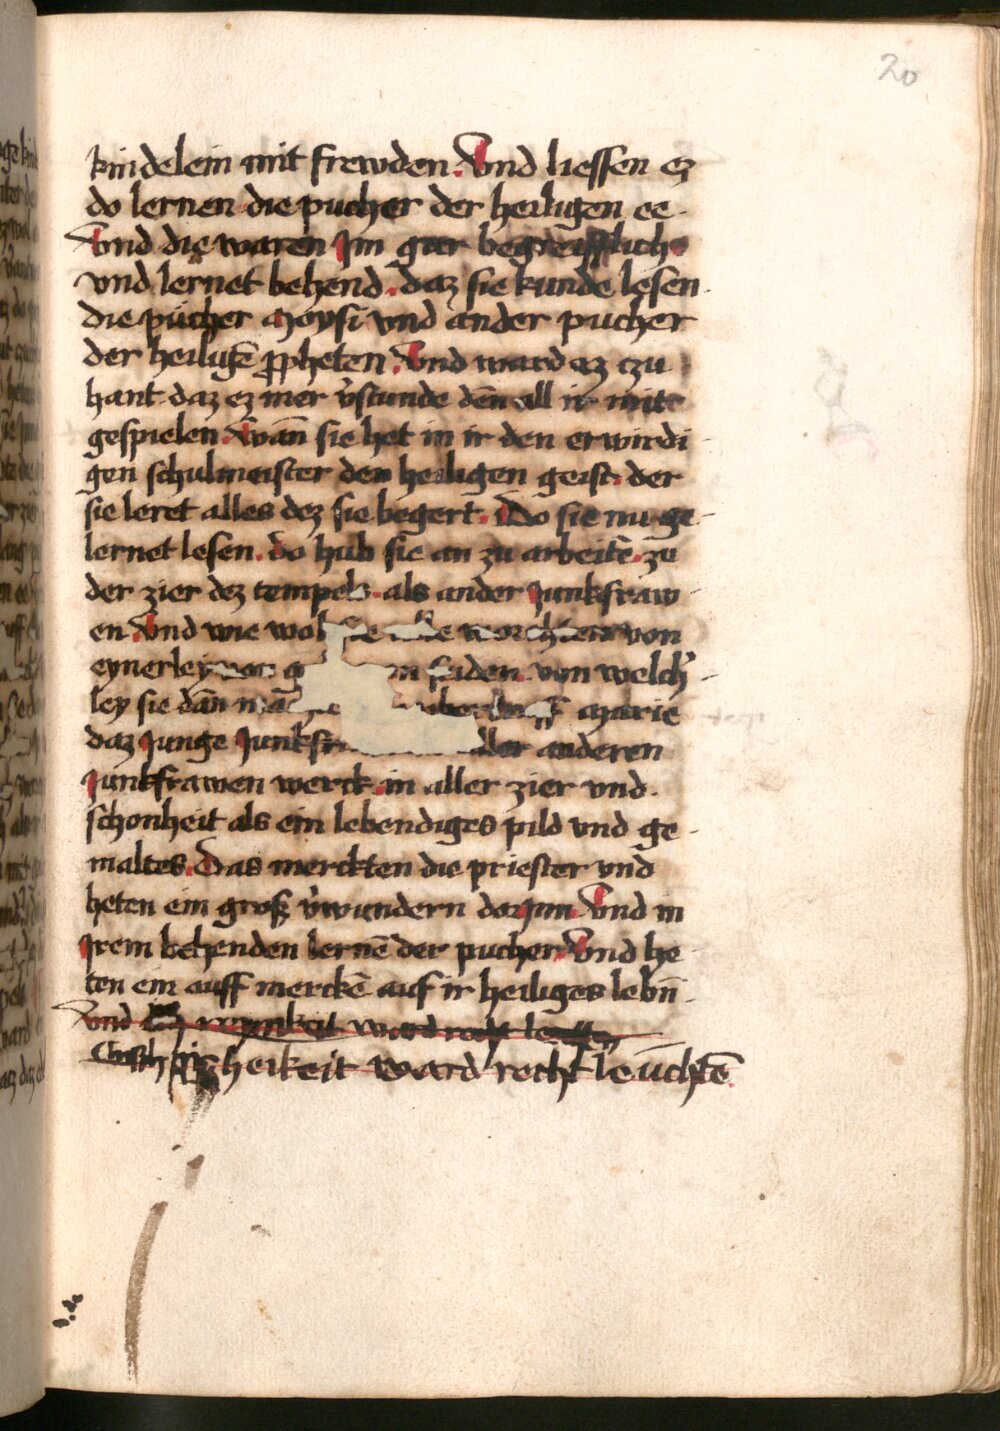 20
kindelein mit frewden. Vnd liessen ez
do lernen die pucher der heiligen ee.
Vnd die waren Jm gar begreifflich.
vnd lernet behend. daz sie kunde lesen.
die pücher Moysi vnd ander pucher
der heiligē ꝓpheten. Vnd ward ez czu
hant daz ez mer v̓stunde dēn all ir mitt
gespielen. Wān sie het in ir den erwirdi
gen schulmeister den heiligen geist. der
sie leret alles dez sie begert. Do sie nu ge
lernet lesen. do hub sie an zu arbeitē. zu
der zier dez tempels. als ander Junkfraw
en. Vnd wie wol von
eynerley faden. von welch̓
ley sie dān Marie
daz Junge anderen
Junkfrawen werck. in aller zier vnd.
schonheit als ein lebendiges pild vnd ge
maltes. Das merckten die priester vnd
heten ein groß v̓wundern dorJnn. Vnd in
Jrem behenden lernē der pucher. Vnd he
ten ein auff merckē auf ir heiliges lebn̄.
vnd ward recht
heikeit ward recht leüchtē.